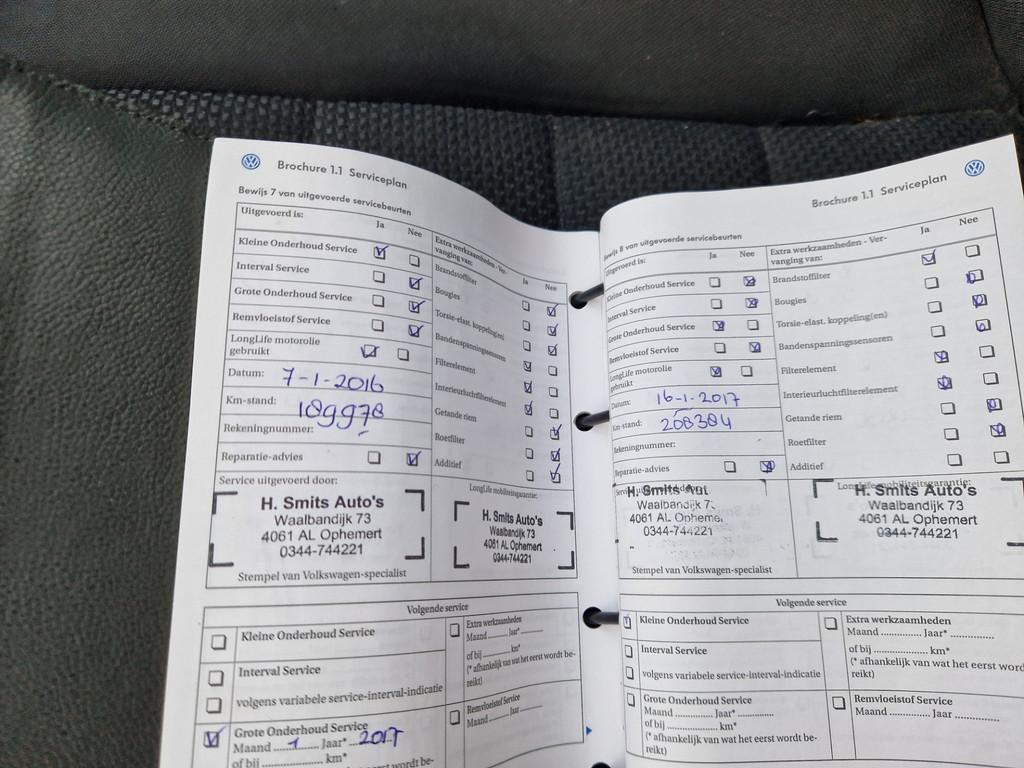 Brochure 1.1 Serviceplan
Bewijs 7 van uitgevoerde servicebeurten
Uitgevoerd is:
Ja Nee
Kleine Onderhoud Service
Interval Service
Grote Onderhoud Service
Remvloeistof Service
LongLife motorolie
gebruikt
Datum: 7-1-2016
Km-stand: 189978
Rekeningnummer:
Reparatie-advies
Service uitgevoerd door:
H. Smits Auto's
Waalbandijk 73
4061 AL Ophemert
0344-744221
Stempel van Volkswagen-specialist
Extra werkzaamheden - Ver-
vanging van:
Ja Nee
Brandstoffilter
Bougies
Torsie-elast. koppeling(en)
Bandenspanningssensoren
Filterelement
Interieurluchtfilterelement
Getande riem
Roetfilter
Additief
LongLife mobiliteitsgarantie:
H. Smits Auto's
Waalbandijk 73
4061 AL Ophemert
0344-744221
Volgende service
Kleine Onderhoud Service
Interval Service
volgens variabele service-interval-indicatie
Grote Onderhoud Service
Maand ....1.... Jaar* ...2017
of bij .................... km*
Extra werkzaamheden
Maand ........... Jaar* ...........
of bij .................... km*
(* afhankelijk van wat het eerst wordt be-
reikt)
Remvloeistof Service
Maand ........... Jaar ...........
Brochure 1.1 Serviceplan
Bewijs 8 van uitgevoerde servicebeurten
Uitgevoerd is:
Ja Nee
Kleine Onderhoud Service
Interval Service
Grote Onderhoud Service
Remvloeistof Service
LongLife motorolie
gebruikt
Datum: 16-1-2017
Km-stand: 208384
Rekeningnummer:
Reparatie-advies
H. Smits Aut
Waalbandijk 7
4061 AL Ophemer
0344-744221
Stempel van Volkswagen-specialist
Extra werkzaamheden - Ver-
vanging van:
Ja Nee
Brandstoffilter
Bougies
Torsie-elast. koppeling(en)
Bandenspanningssensoren
Filterelement
Interieurluchtfilterelement
Getande riem
Roetfilter
Additief
Longlife mobiliteitsgarantie:
H. Smits Auto's
Waalbandijk 73
4061 AL Ophemert
0344-744221
Volgende service
Kleine Onderhoud Service
Interval Service
volgens variabele service-interval-indicatie
Grote Onderhoud Service
Maand ............ Jaar* ...............
of bij .................... km*
(* afhankelijk van wat het eerst wordt be-
reikt)
Extra werkzaamheden
Maand .............. Jaar* ...............
of bij ........................ km*
(* afhankelijk van wat het eerst word
reikt)
Remvloeistof Service
Maand .............. Jaar ...............